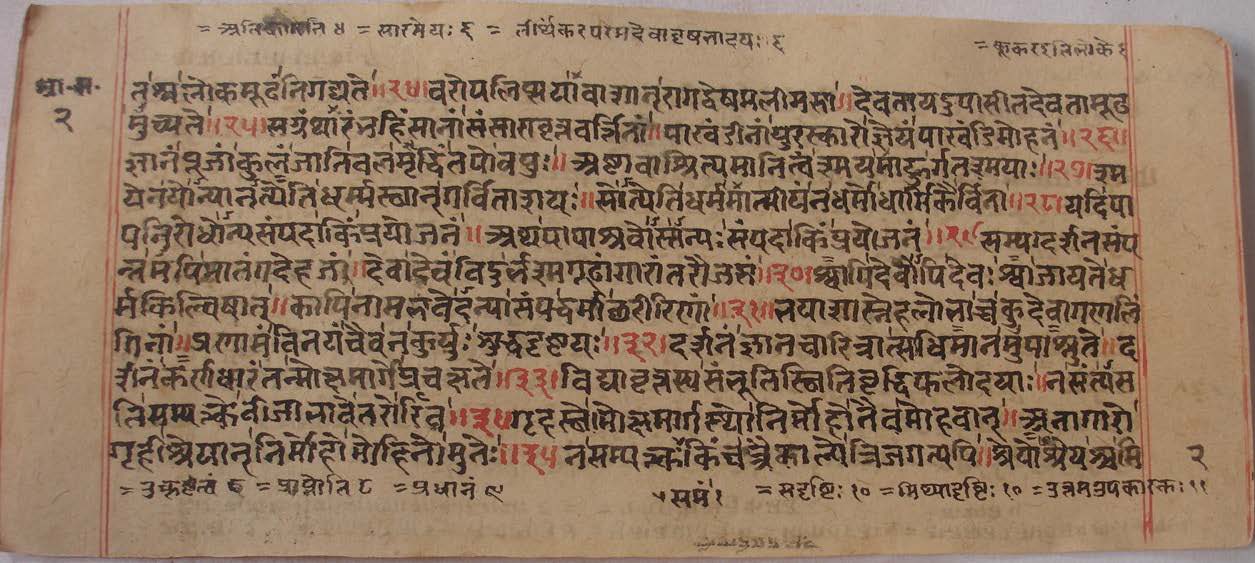 = अतिक्रामति ४ = सारमेयः ६ = तीर्थंकरपरमदेवावृषभादयः ६
भ्रा॰ म॰ नंअलोकमूढंनिगद्यते॥२४॥वरोपलिप्सयावाशानूरागद्वेषमलीमसा॥देवतायदुपासीतदेवतामूढ
२ मुच्यते॥२५॥सग्रंथारंभहिंसानांसंसारावृत्तवर्त्तिनां॥पाखंडीनांपुरस्कारोज्ञेयंपाखंडिमोहनं॥२६॥
ज्ञानंपूजांकुलंजातिंबलमृद्धिंतपोवपुः॥अष्टावाश्रित्यमानित्वंस्मयमाहुर्गतस्मयाः॥२७॥स्म
येनयोन्यानत्येतिधर्म्मस्थान्गर्विताशयः॥सोत्येतिधर्ममात्मीयंनधर्मोधार्मिकैर्विना॥२८॥यदिपा
पनिरोधोन्यसंपदाकिंप्रयोजनं॥अथपापाश्रवोस्त्यन्यःसंपदाकिंप्रयोजनं॥२९॥सम्यग्दर्शनसंप
न्नमपिमातंगदेहजं॥देवादेवंविदुर्भस्मगूढांगारांतरौजसं॥३०॥श्वापिदेवोपिदेवःश्वाजायतेध
र्मकिल्विषात्॥कापिनामभवेदन्यासंपद्धर्माच्छरीरिणां॥३१॥भयाशास्नेहलोभाच्चकुदेवागमलिं
गिनां॥प्रणामंविनयंचैवनकुर्युःशुद्धदृष्टयः॥३२॥दर्शनंज्ञानचारित्रात्साधिमानमुपाश्नुते॥द
र्शनंकर्णधारंतन्मोक्षमार्गेप्रचक्षते॥३३॥विद्यावृत्तस्यसंभूतिस्थितिवृद्धिफलोदयाः॥नसंत्यस
तिसम्यक्त्वेबीजाभावेतरोरिव॥३४॥गृहस्थोमोक्षमार्गस्थोनिर्मोहोनैवमोहवान्॥अनागारो
गृहीश्रेयान्निर्मोहोमोहिनोमुनेः॥३५॥नसम्यक्त्वंकिंचित्रैकाल्येत्रिजगत्यपि॥श्रेयोश्रेयश्चमि २
= प्राप्नोति ८ = प्रधानं ९ = सदृष्टिः १० = मिथ्यादृष्टिः १० = उत्तमउपकारकः ११